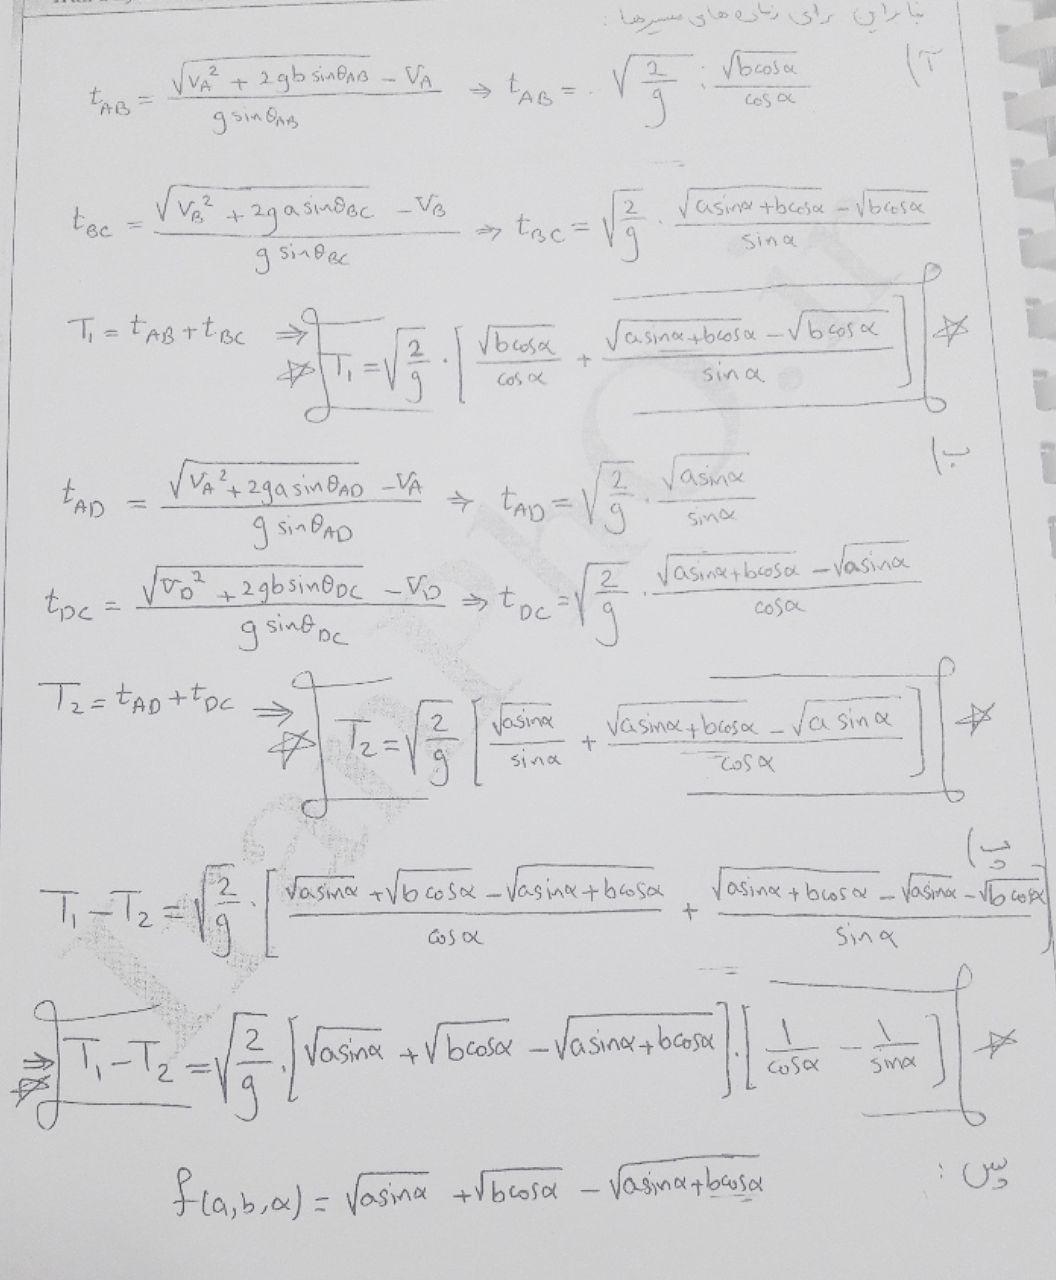 بنابراین برای زمان های مسیرها :
آ)
t_AB = (√(V_A² + 2gb sinθ_AB) - V_A) / (g sinθ_AB) ⇒ t_AB = √(2/g) · √(b cosα) / cosα
t_BC = (√(V_B² + 2ga sinθ_BC) - V_B) / (g sinθ_BC) ⇒ t_BC = √(2/g) · (√(a sinα + b cosα) - √(b cosα)) / sinα
T₁ = t_AB + t_BC ⇒ T₁ = √(2/g) · [√(b cosα) / cosα + (√(a sinα + b cosα) - √(b cosα)) / sinα]
ب)
t_AD = (√(V_A² + 2ga sinθ_AD) - V_A) / (g sinθ_AD) ⇒ t_AD = √(2/g) · √(a sinα) / sinα
t_DC = (√(V_D² + 2gb sinθ_DC) - V_D) / (g sinθ_DC) ⇒ t_DC = √(2/g) · (√(a sinα + b cosα) - √(a sinα)) / cosα
T₂ = t_AD + t_DC ⇒ T₂ = √(2/g) [√(a sinα) / sinα + (√(a sinα + b cosα) - √(a sinα)) / cosα]
پ)
T₁ - T₂ = √(2/g) · [(√(a sinα) + √(b cosα) - √(a sinα + b cosα)) / cosα + (√(a sinα + b cosα) - √(a sinα) - √(b cosα)) / sinα]
⇒ T₁ - T₂ = √(2/g) · [√(a sinα) + √(b cosα) - √(a sinα + b cosα)] · [1/cosα - 1/sinα]
پس :
f(a,b,α) = √(a sinα) + √(b cosα) - √(a sinα + b cosα)